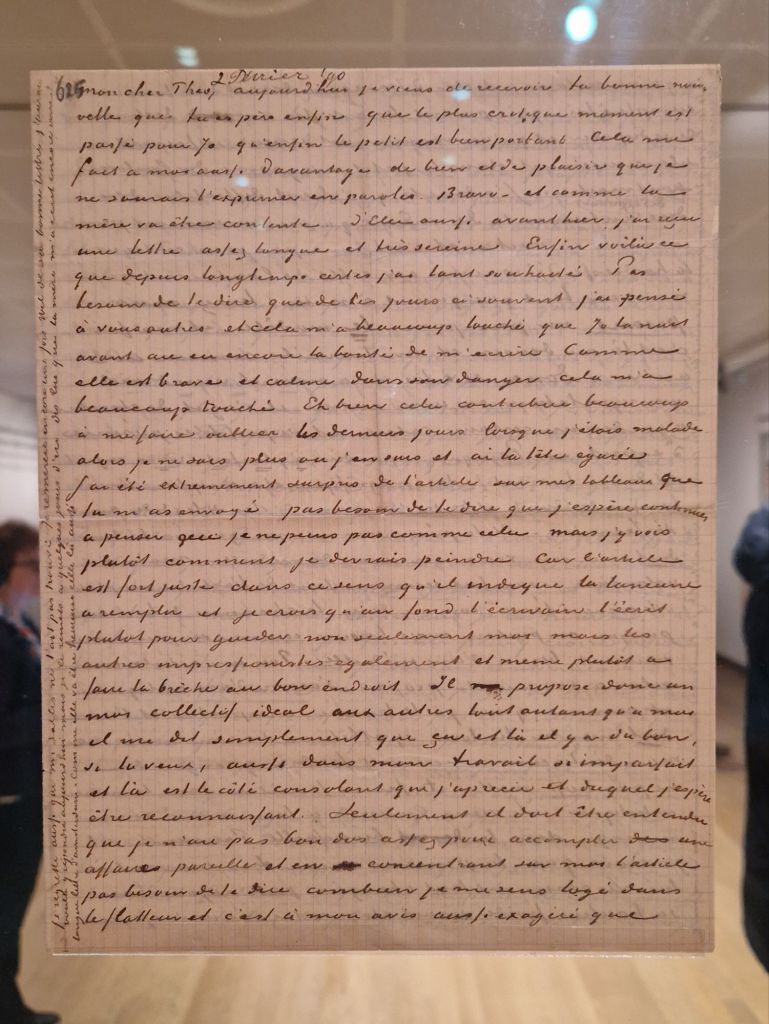 625
2 Février '90
mon cher Theo, aujourd'hui je viens de recevoir ta bonne nou,
velle que tu es père enfin que le plus critique moment est
passé pour Jo qu'enfin le petit est bien portant Cela me
fait à moi aussi davantage de bien et de plaisir que je
ne saurais l'exprimer en paroles. Bravo – et comme la
mère va être contente. D'Elle aussi avant hier j'ai reçu
une lettre assez longue et très sereine Enfin voilà ce
que depuis longtemps certes j'ai tant souhaité Pas
besoin de te dire que de ces jours ci souvent j'ai pensé
à vous autres et cela m'a beaucoup touché que Jo la nuit
avant ait eu encore la bonté de m'écrire Comme
elle est brave et calme dans son danger cela m'a
beaucoup touché Eh bien cela contribue beaucoup
à me faire oublier les derniers jours lorsque j'étais malade
alors je ne sais plus où j'en suis et ai la tête égarée
J'ai été extrêmement surpris de l'article sur mes tableaux que
tu m'as envoyé pas besoin de te dire que j'espère continuer
a penser que je ne peins pas comme cela mais j'y vois
plutôt comment je devrais peindre Car l'article
est fort juste dans ce sens qu'il indique la lacune
a remplir et je crois qu'au fond l'écrivain l'écrit
plutot pour guider non seulement moi mais les
autres impressionistes également et meme plutot a
faire la brèche au bon endroit Il propose donc un
moi collectif ideal aux autres tout autant qu'a moi
il me dit simplement que ça et là il y a du bon,
si tu veux, aussi dans mon travail si imparfait
et là est le côté consolant que j'apprecie et duquel j'espère
être reconnaissant. Seulement il doit être entendu
que je n'ai pas bon dos assez pour accomplir une
affaire pareille et en concentrant sur moi l'article
pas besoin de te dire combien je me sens logé dans
le flatteur et c'est à mon avis aussi exagéré que
Je regrette aussi que mes toiles ne t'ait pas trouvé Je remercie encore une fois Wil de sa bonne lettre j'aurais
voulu y repondre aujourd'hui mais je le remets a quelques jours d'ici dis lui que la mère m'a ecrit encore une
longue lettre d'amsterdam. Comme elle va être heureuse elle là aussi